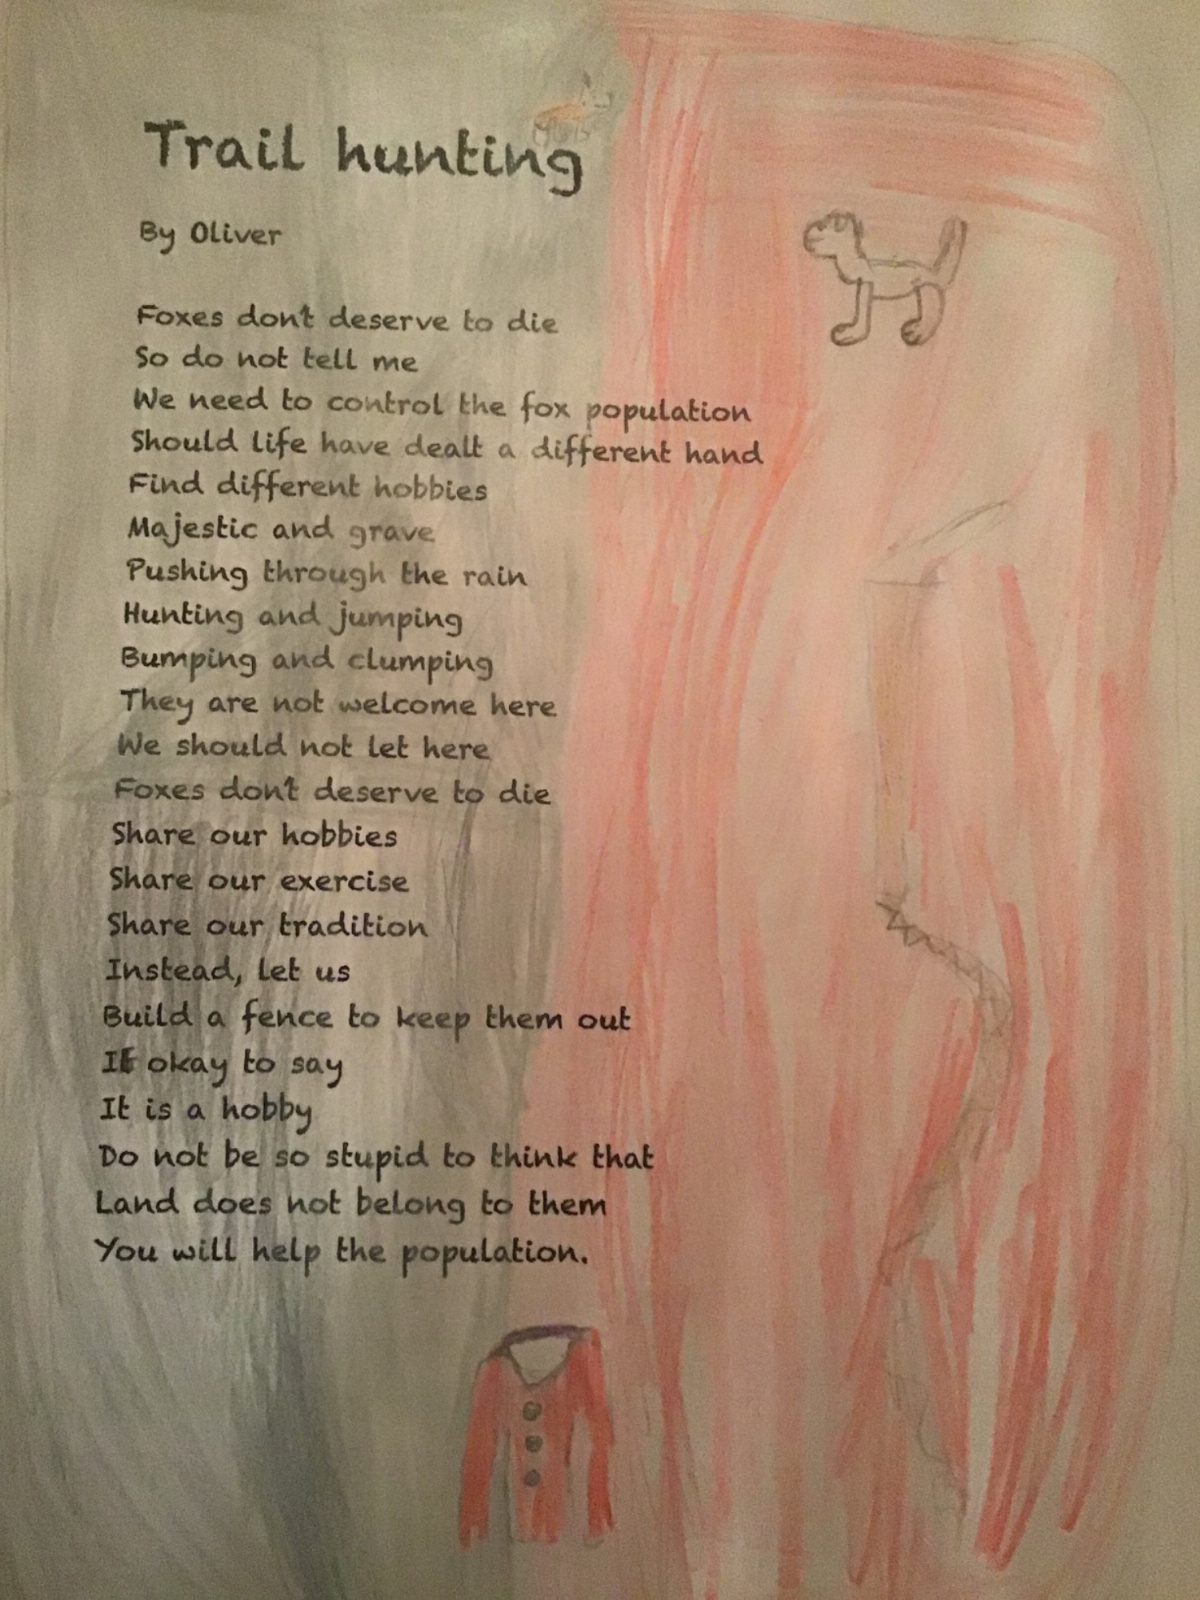 Trail hunting
By Oliver
Foxes don't deserve to die
So do not tell me
We need to control the fox population
Should life have dealt a different hand
Find different hobbies
Majestic and grave
Pushing through the rain
Hunting and jumping
Bumping and clumping
They are not welcome here
We should not let here
Foxes don't deserve to die
Share our hobbies
Share our exercise
Share our tradition
Instead, let us
Build a fence to keep them out
It okay to say
It is a hobby
Do not be so stupid to think that
Land does not belong to them
You will help the population.